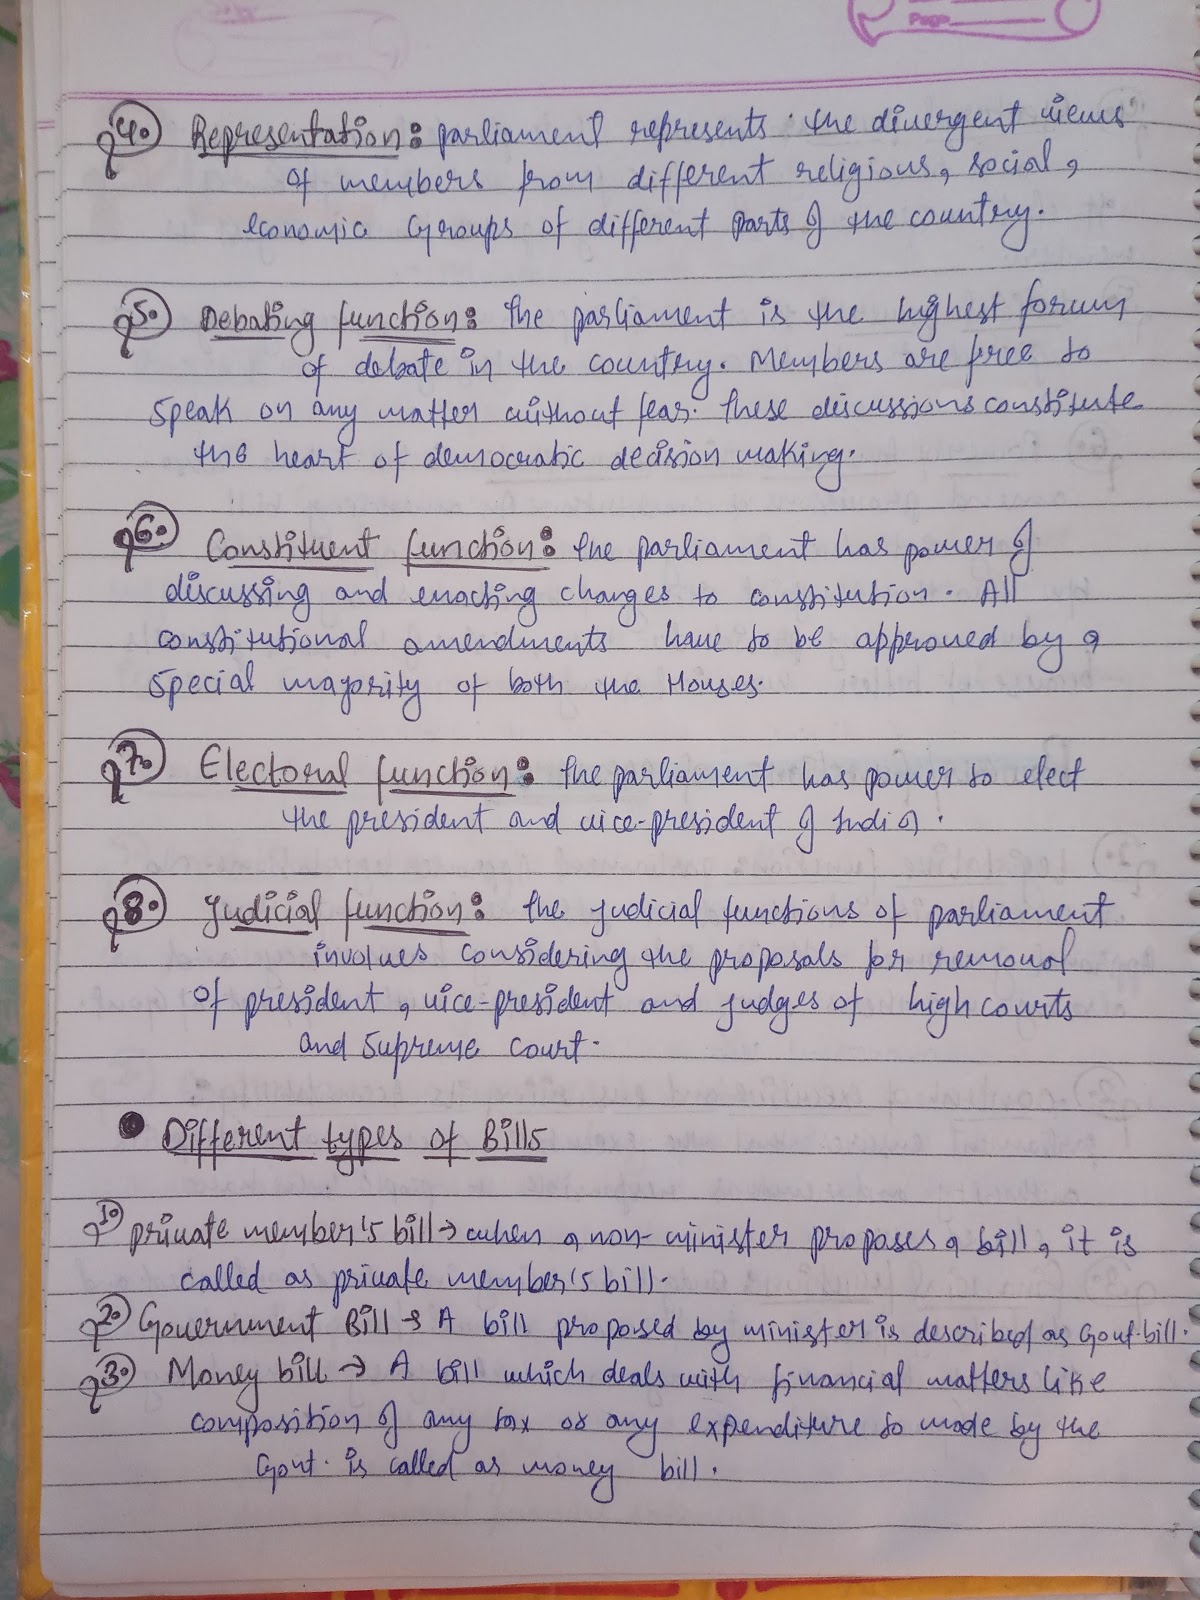 Page
4. Representation: parliament represents the divergent views
of members from different religious, social,
economic Groups of different parts of the country.
5. Debating function: the parliament is the highest forum
of debate in the country. Members are free to
speak on any matter without fear. these discussions constitute
the heart of democratic decision making.
6. Constituent function: the parliament has power of
discussing and enacting changes to constitution. All
constitutional amendments have to be approved by a
special majority of both the Houses.
7. Electoral function: the parliament has power to elect
the president and vice-president of India.
8. Judicial function: the judicial functions of parliament
involves considering the proposals for removal
of president, vice-president and judges of high courts
and Supreme court.
• Different types of Bills
1. private member's bill → when a non-minister proposes a bill, it is
called as private member's bill.
2. Government Bill → A bill proposed by minister is described as Govt. bill.
3. Money bill → A bill which deals with financial matters like
composition of any tax or any expenditure to made by the
Govt. is called as money bill.